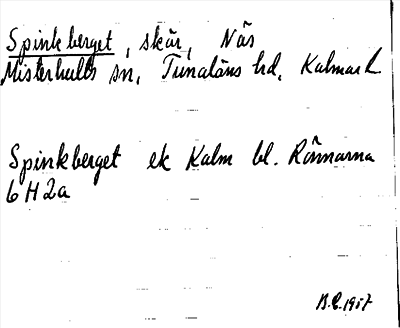 Spinkberget, skär, Näs
Misterhults sn, Tunaläns hd, Kalmar L.
Spinkberget ek Kalm bl. Rönnarna
6 H 2a
B.C. 1957